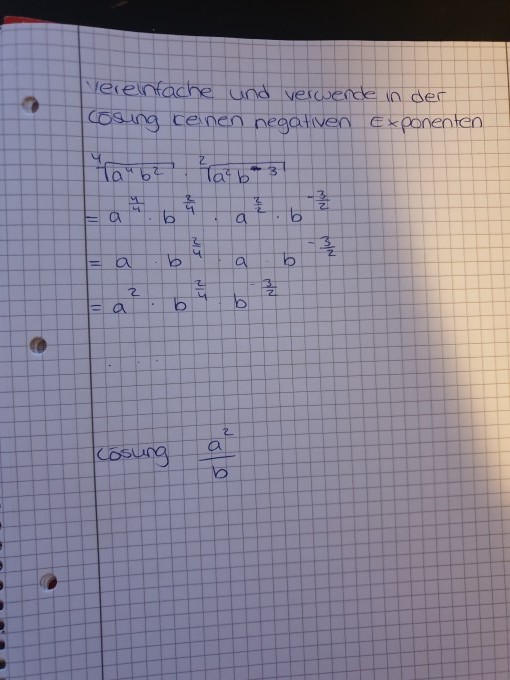 vereinfache und verwende in der
Lösung keinen negativen Exponenten
⁴√(a⁴b²) · ²√(a²b⁻³)
= a^(4/4) · b^(2/4) · a^(2/2) · b^(-3/2)
= a · b^(2/4) · a · b^(-3/2)
= a² · b^(2/4) · b^(-3/2)
. . . .
Lösung a²/b